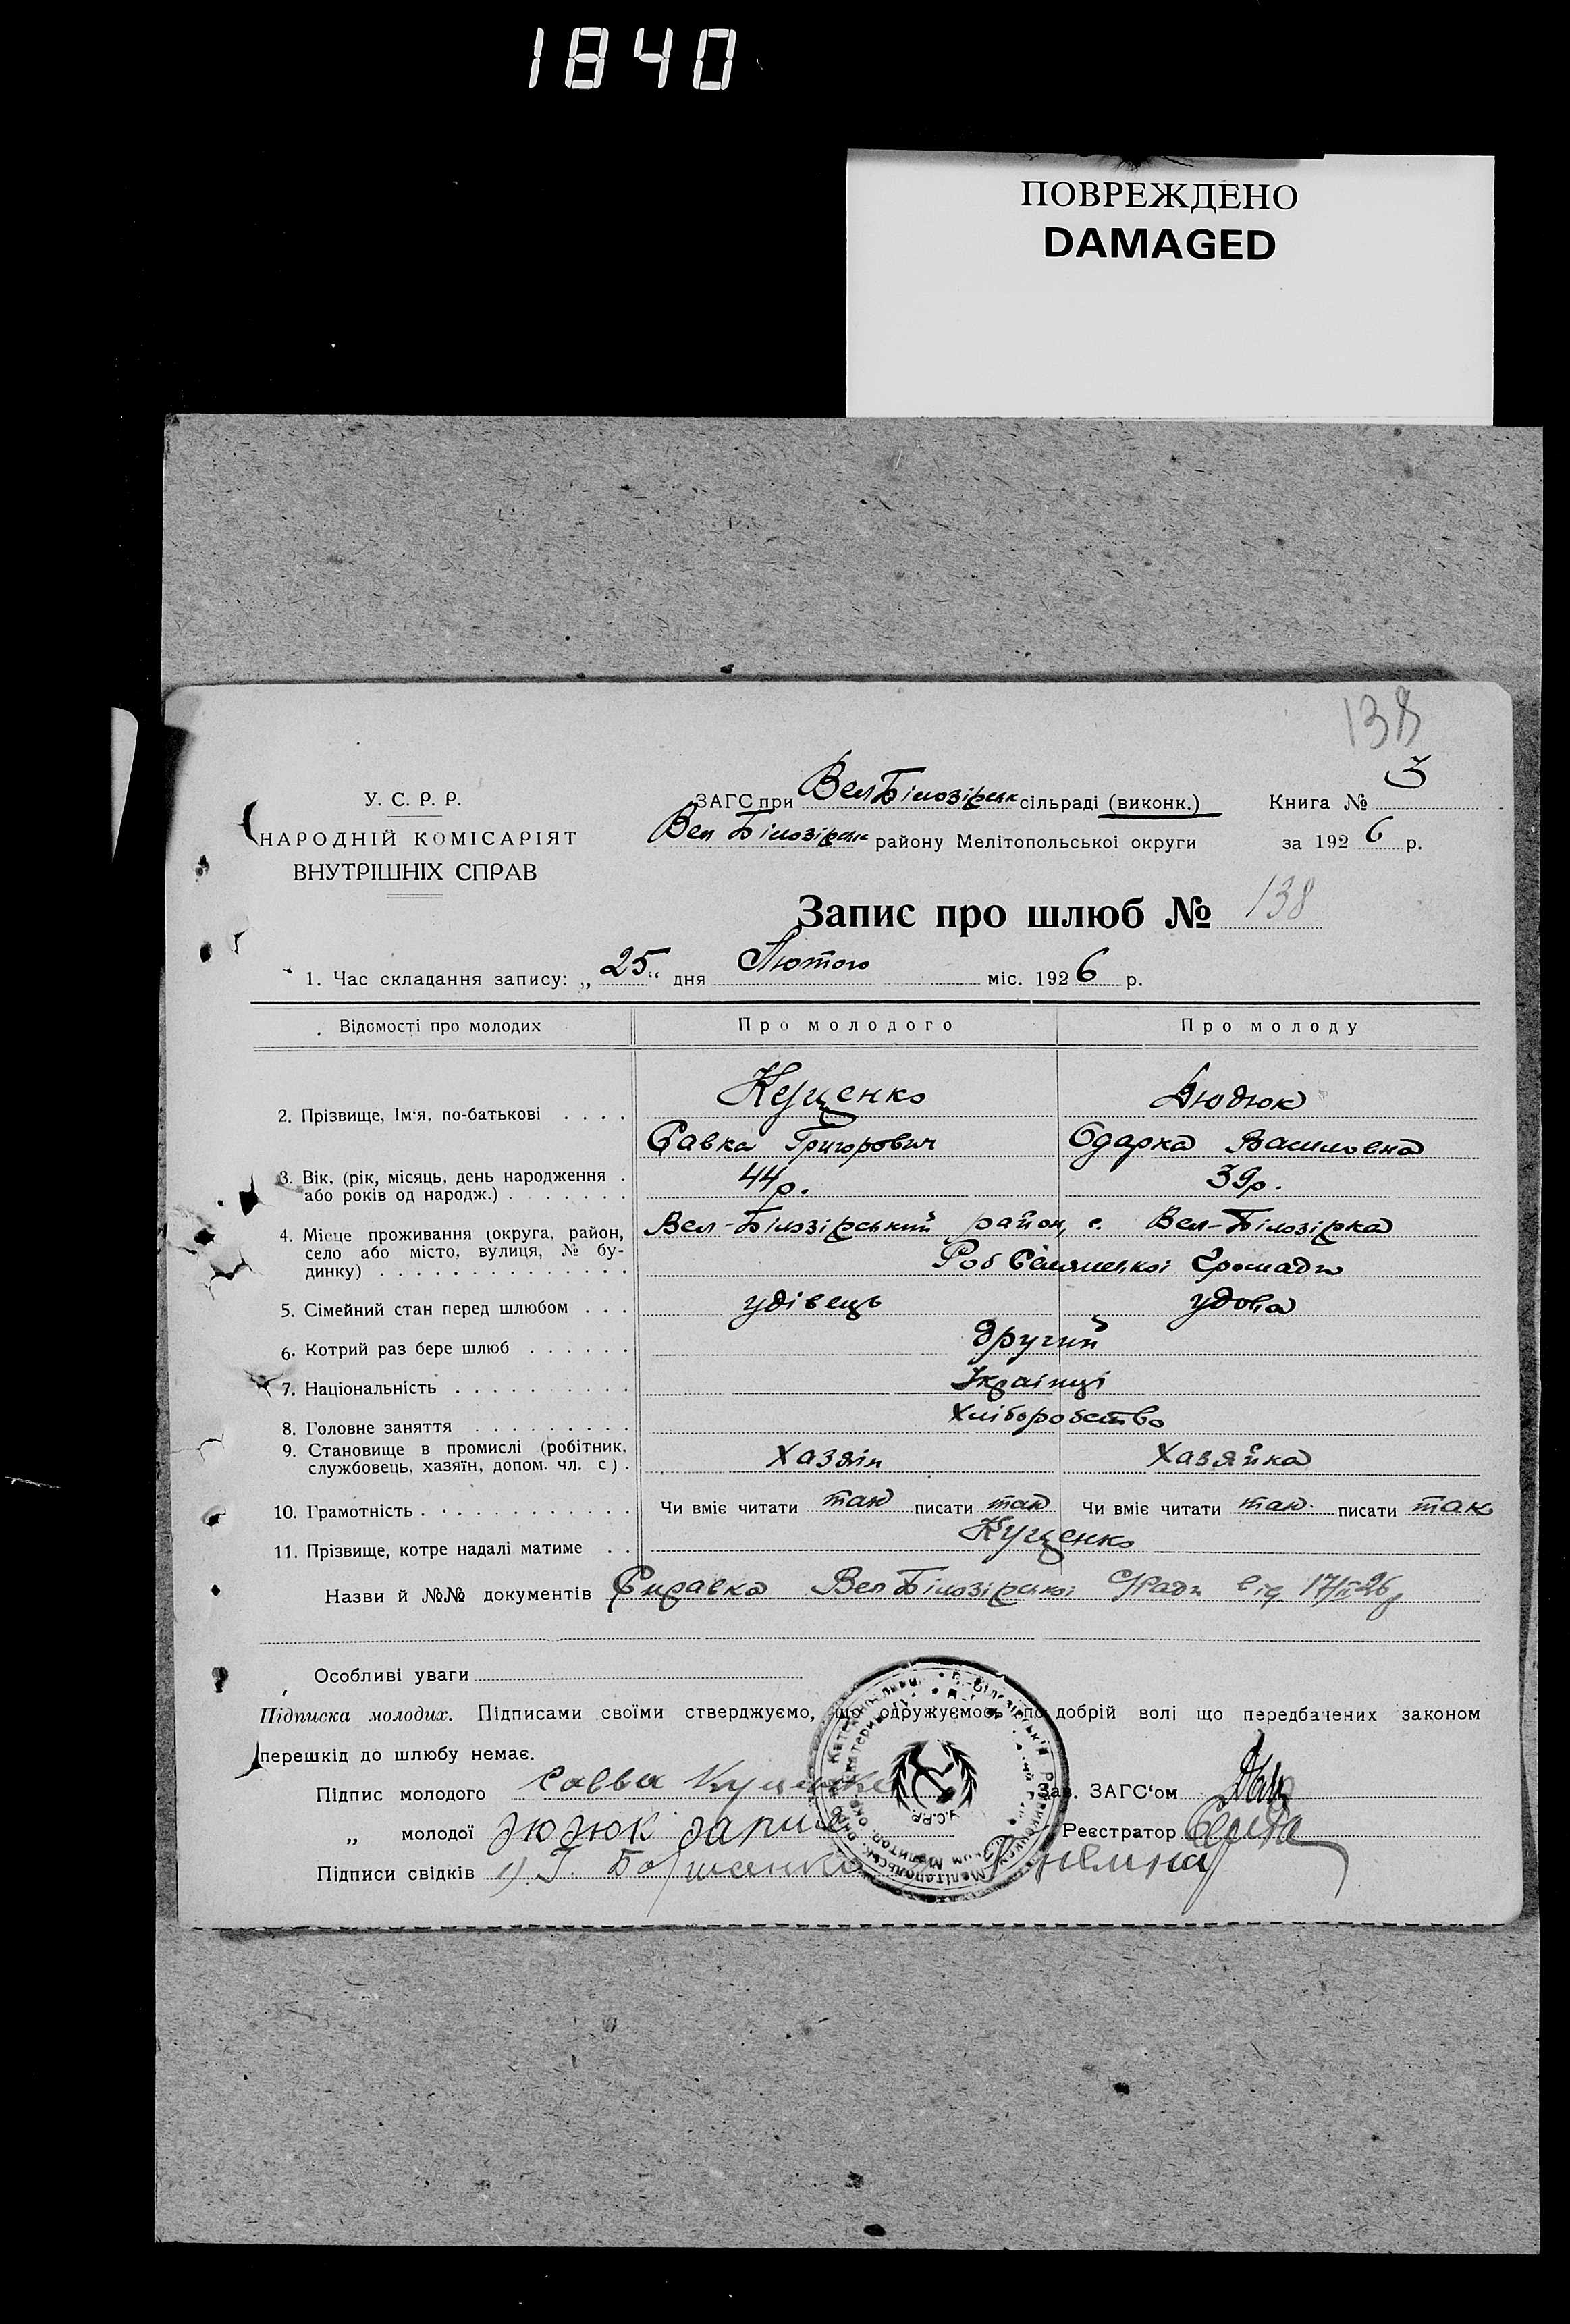 1840
ПОВРЕЖДЕНО
DAMAGED
138
У. С. Р. Р.
НАРОДНІЙ КОМІСАРІЯТ
ВНУТРІШНІХ СПРАВ
ЗАГС при Вел Білозірськ сільраді (виконк.)
Вел Білозірськ району Мелітопольської округи
Книга № 3
за 1926 р.
Запис про шлюб № 138
1. Час складання запису: „25" дня Лютого міс. 1926 р.
Відомості про молодих Про молодого Про молоду
2. Прізвище, Ім'я, по-батькові . . . . Кущенко Дюдюк
Савка Григорович Одарка Василовна
3. Вік, (рік, місяць, день народження . 44р. 39р.
або років од народж.) . . . . . . .
4. Місце проживання (округа, район, Вел-Білозірський район, с. Вел-Білозірка
село або місто, вулиця, № бу-
динку) . . . . . . . . . . . . . . Роб Селянської Громади
5. Сімейний стан перед шлюбом . . . удівець удова
6. Котрий раз бере шлюб . . . . . . другий
7. Національність . . . . . . . . . . Українці
8. Головне заняття . . . . . . . . . Хліборобство
9. Становище в промислі (робітник, Хазяїн Хазяйка
службовець, хазяїн, допом. чл. с) .
10. Грамотність . . . . . . . . . . . . Чи вміє читати так писати так Чи вміє читати так писати так
11. Прізвище, котре надалі матиме . . Кущенко
Назви й №№ документів Справка Вел Білозірської С/Ради від 17/II 26р
Особливі уваги
Підписка молодих. Підписами своїми стверджуємо, що одружуємось по добрій волі що передбачених законом
перешкід до шлюбу немає.
Підпис молодого Савва Кущенко Зав. ЗАГС'ом
„ молодої Дюдюк Реєстратор
Підписи свідків 1) Г.
У.С.Р.Р.